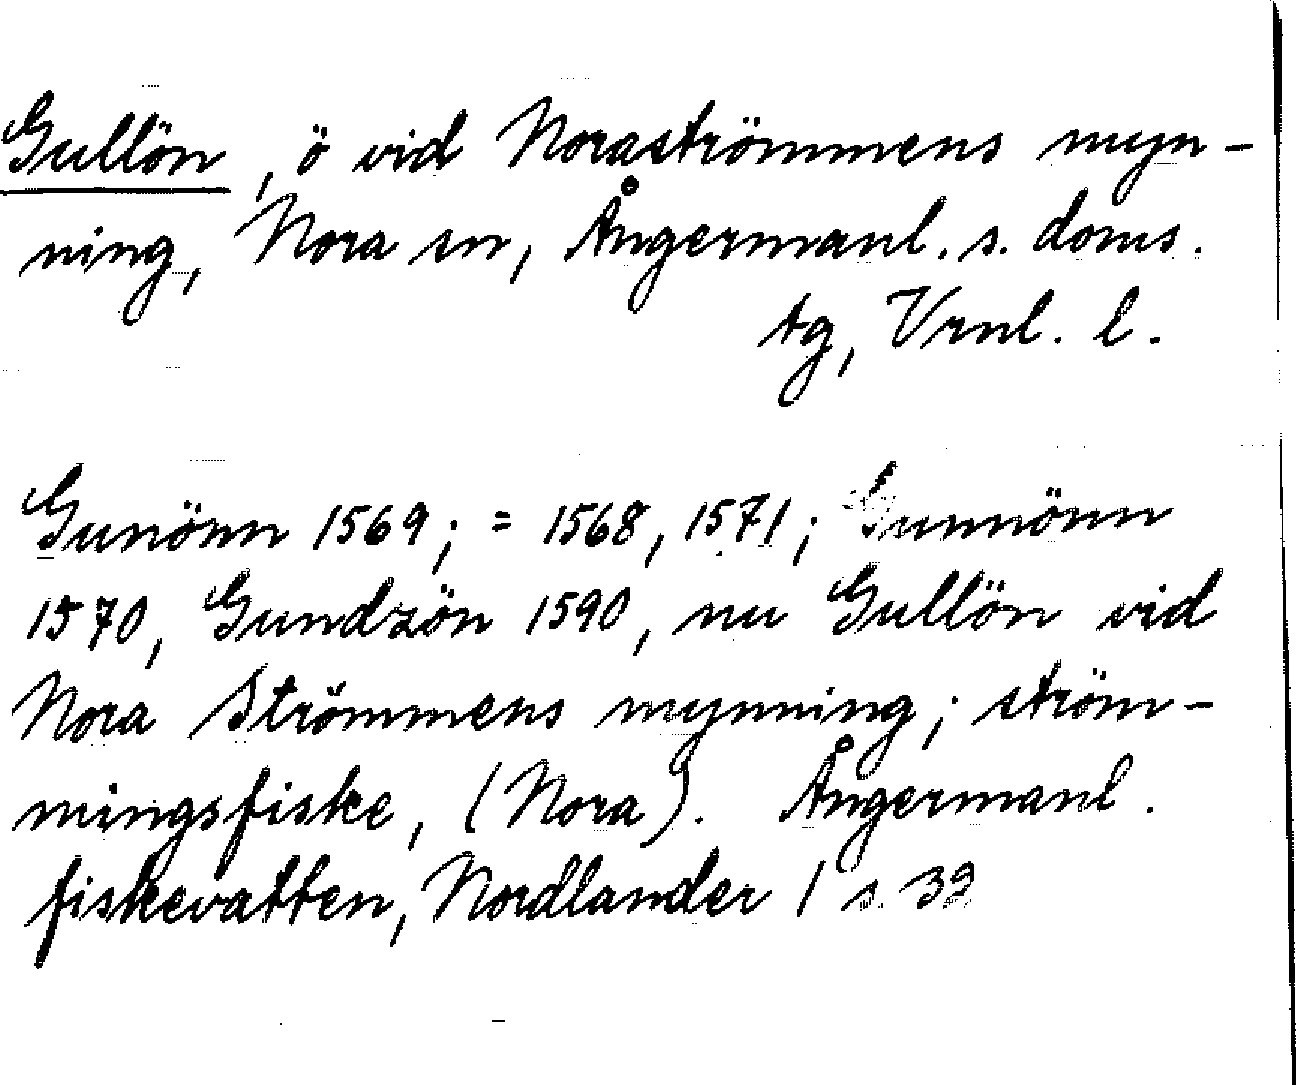 Gullön, ö vid Noraströmmens myn-
ning, Nora sn, Ångermanl. s. doms.
tg, Vrnl. l.
Gunönn 1569; = 1568, 1571; Gunnönn
1570, Gundzön 1590, nu Gullön vid
Nora Strömmens mynning; ström-
mingsfiske, (Nora). Ångermanl.
fiskevatten, Nordlander 1 s. 32